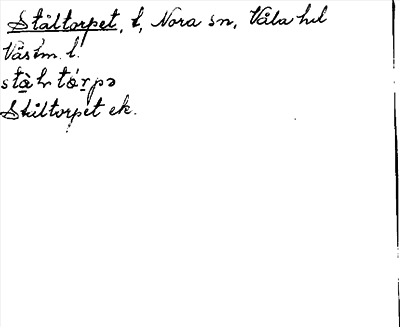 Ståltorpet, t, Nora sn, Våla hd
Väs:m. l.
stål tårpə
Ståltorpet ek.